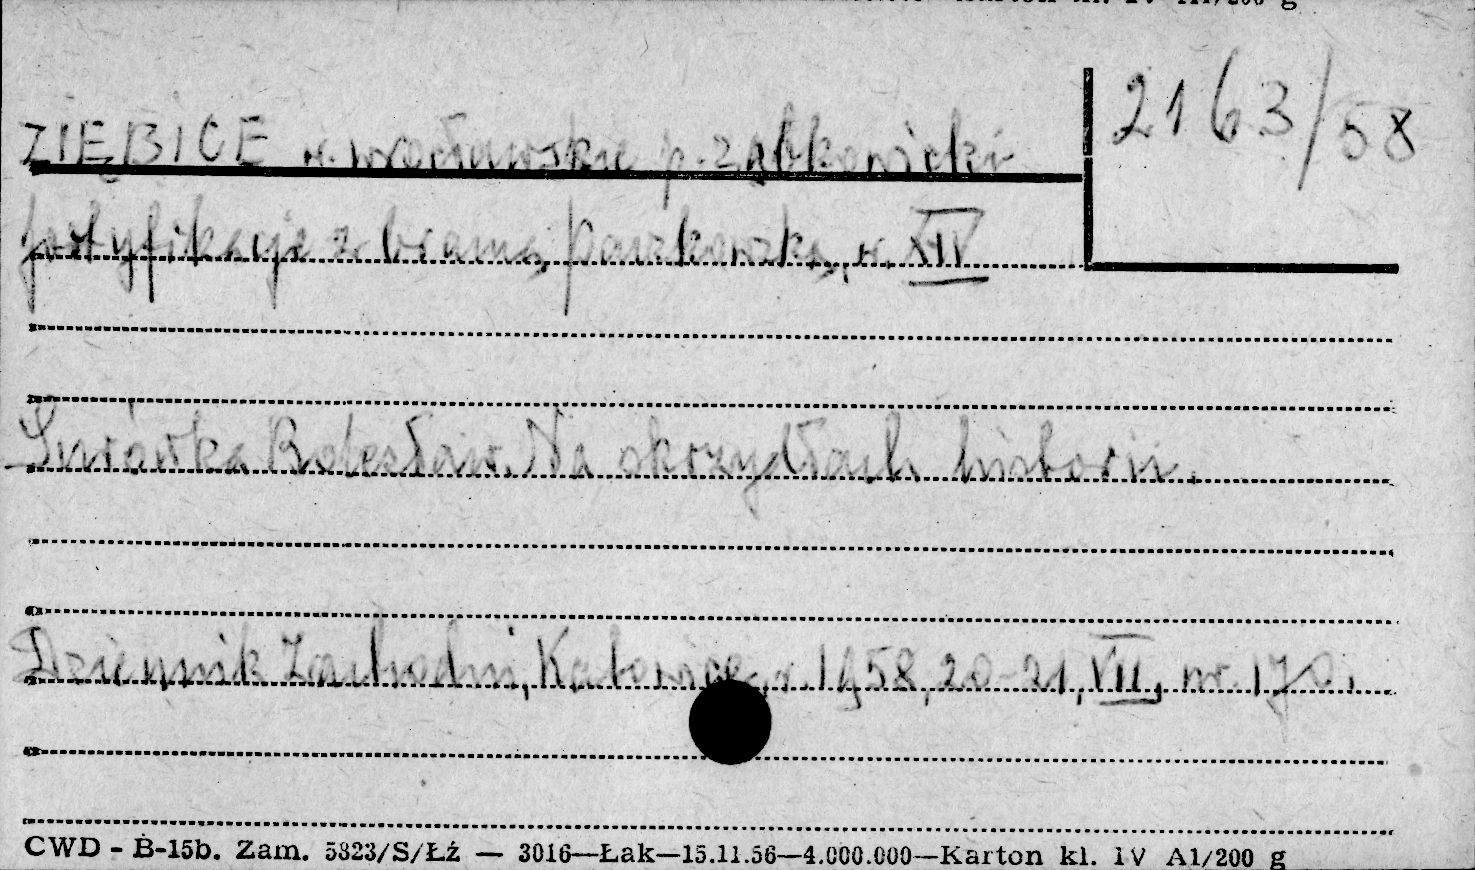 2163/58
ZIĘBICE w. wrocławskie p. ząbkowicki
fortyfikacje z bramą paczkowską, w. XIV
Surówka Bolesław. Na skrzydłach historii.
Dziennik Zachodni, Katowice, r. 1958, 20-21, VII, nr. 170.
CWD - B-15b. Zam. 5823/S/Łź — 3016—Łak—15.11.56—4.000.000—Karton kl. IV A1/200 g